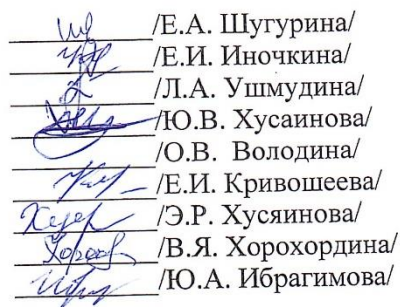 /Е.А. Шугурина/
/Е.И. Иночкина/
/Л.А. Ушмудина/
/Ю.В. Хусаинова/
/О.В. Володина/
/Е.И. Кривошеева/
/Э.Р. Хусяинова/
/В.Я. Хорохордина/
/Ю.А. Ибрагимова/